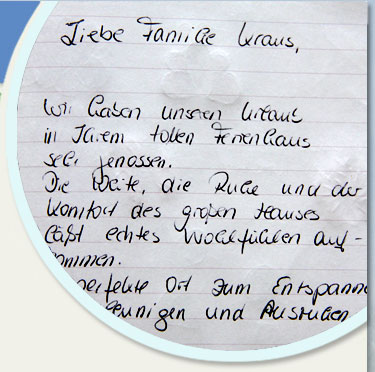 Liebe Familie Kraus,
Wir haben unseren Urlaub
in Ihrem tollen Ferienhaus
sehr genossen.
Die Weite, die Ruhe und der
Komfort des großen Hauses
läßt echtes Wohlfühlen auf-
kommen.
perfekte Ort zum Entspannen
und Ausruhen